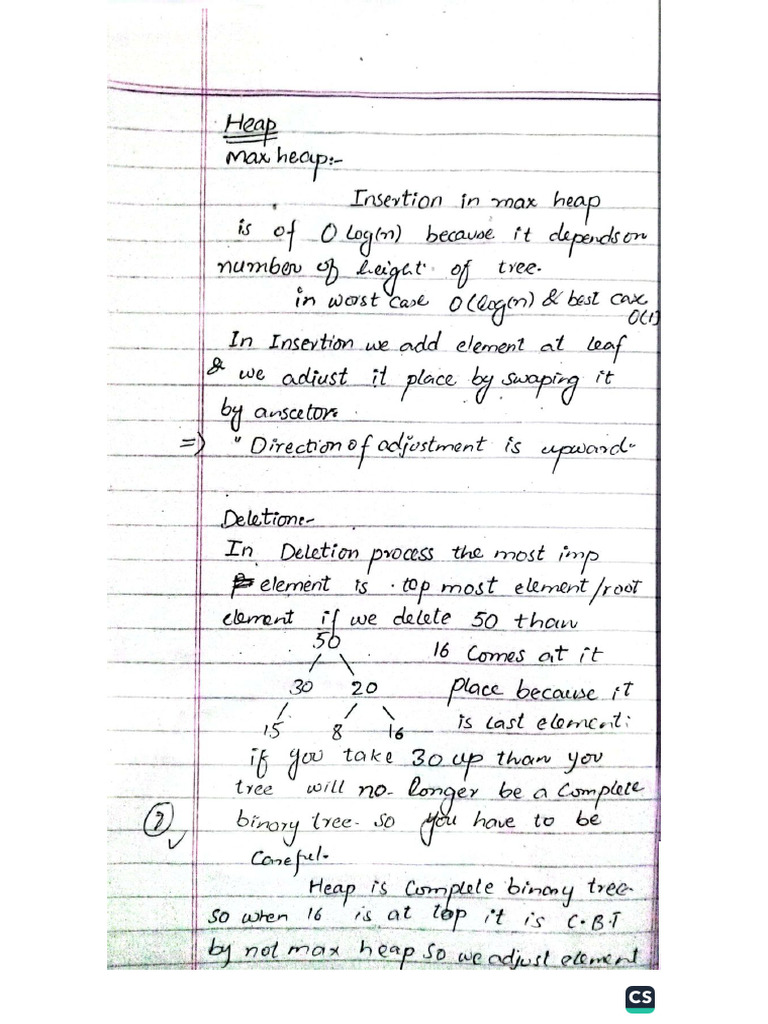 Heap
Max heap:-
Insertion in max heap
is of O log(n) because it depends on
number of height of tree.
in worst case O(log(n) & best case
O(1)
In Insertion we add element at leaf
& we adjust it place by swaping it
by anscetor.
=) "Direction of adjustment is upward"
Deletion:-
In Deletion process the most imp
element is top most element/root
element if we delete 50 than
50
16 comes at it
30 20 place because it
15 8 16 is last element:
if you take 30 up than you
tree will no longer be a complete
binary tree. so you have to be
Careful.
Heap is complete binary tree
so when 16 is at top it is C.B.T
by not max heap so we adjust element
CS